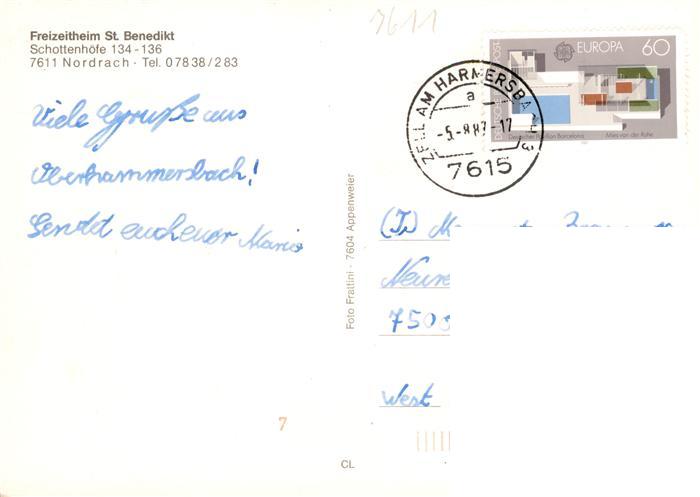 Freizeitheim St. Benedikt
Schottenhöfe 134 - 136
7611 Nordrach · Tel. 07838/283
Viele Grüße aus
Oberhammersbach!
Sendet euch euer Mario
7
Foto Frattini · 7604 Appenweier
CL
7611
ZELL AM HARMERSBACH 3
a
-5.-8.87.-17
7615
DEUTSCHE BUNDESPOST
EUROPA 60
Deutscher Pavillon Barcelona Mies van der Rohe
750
West